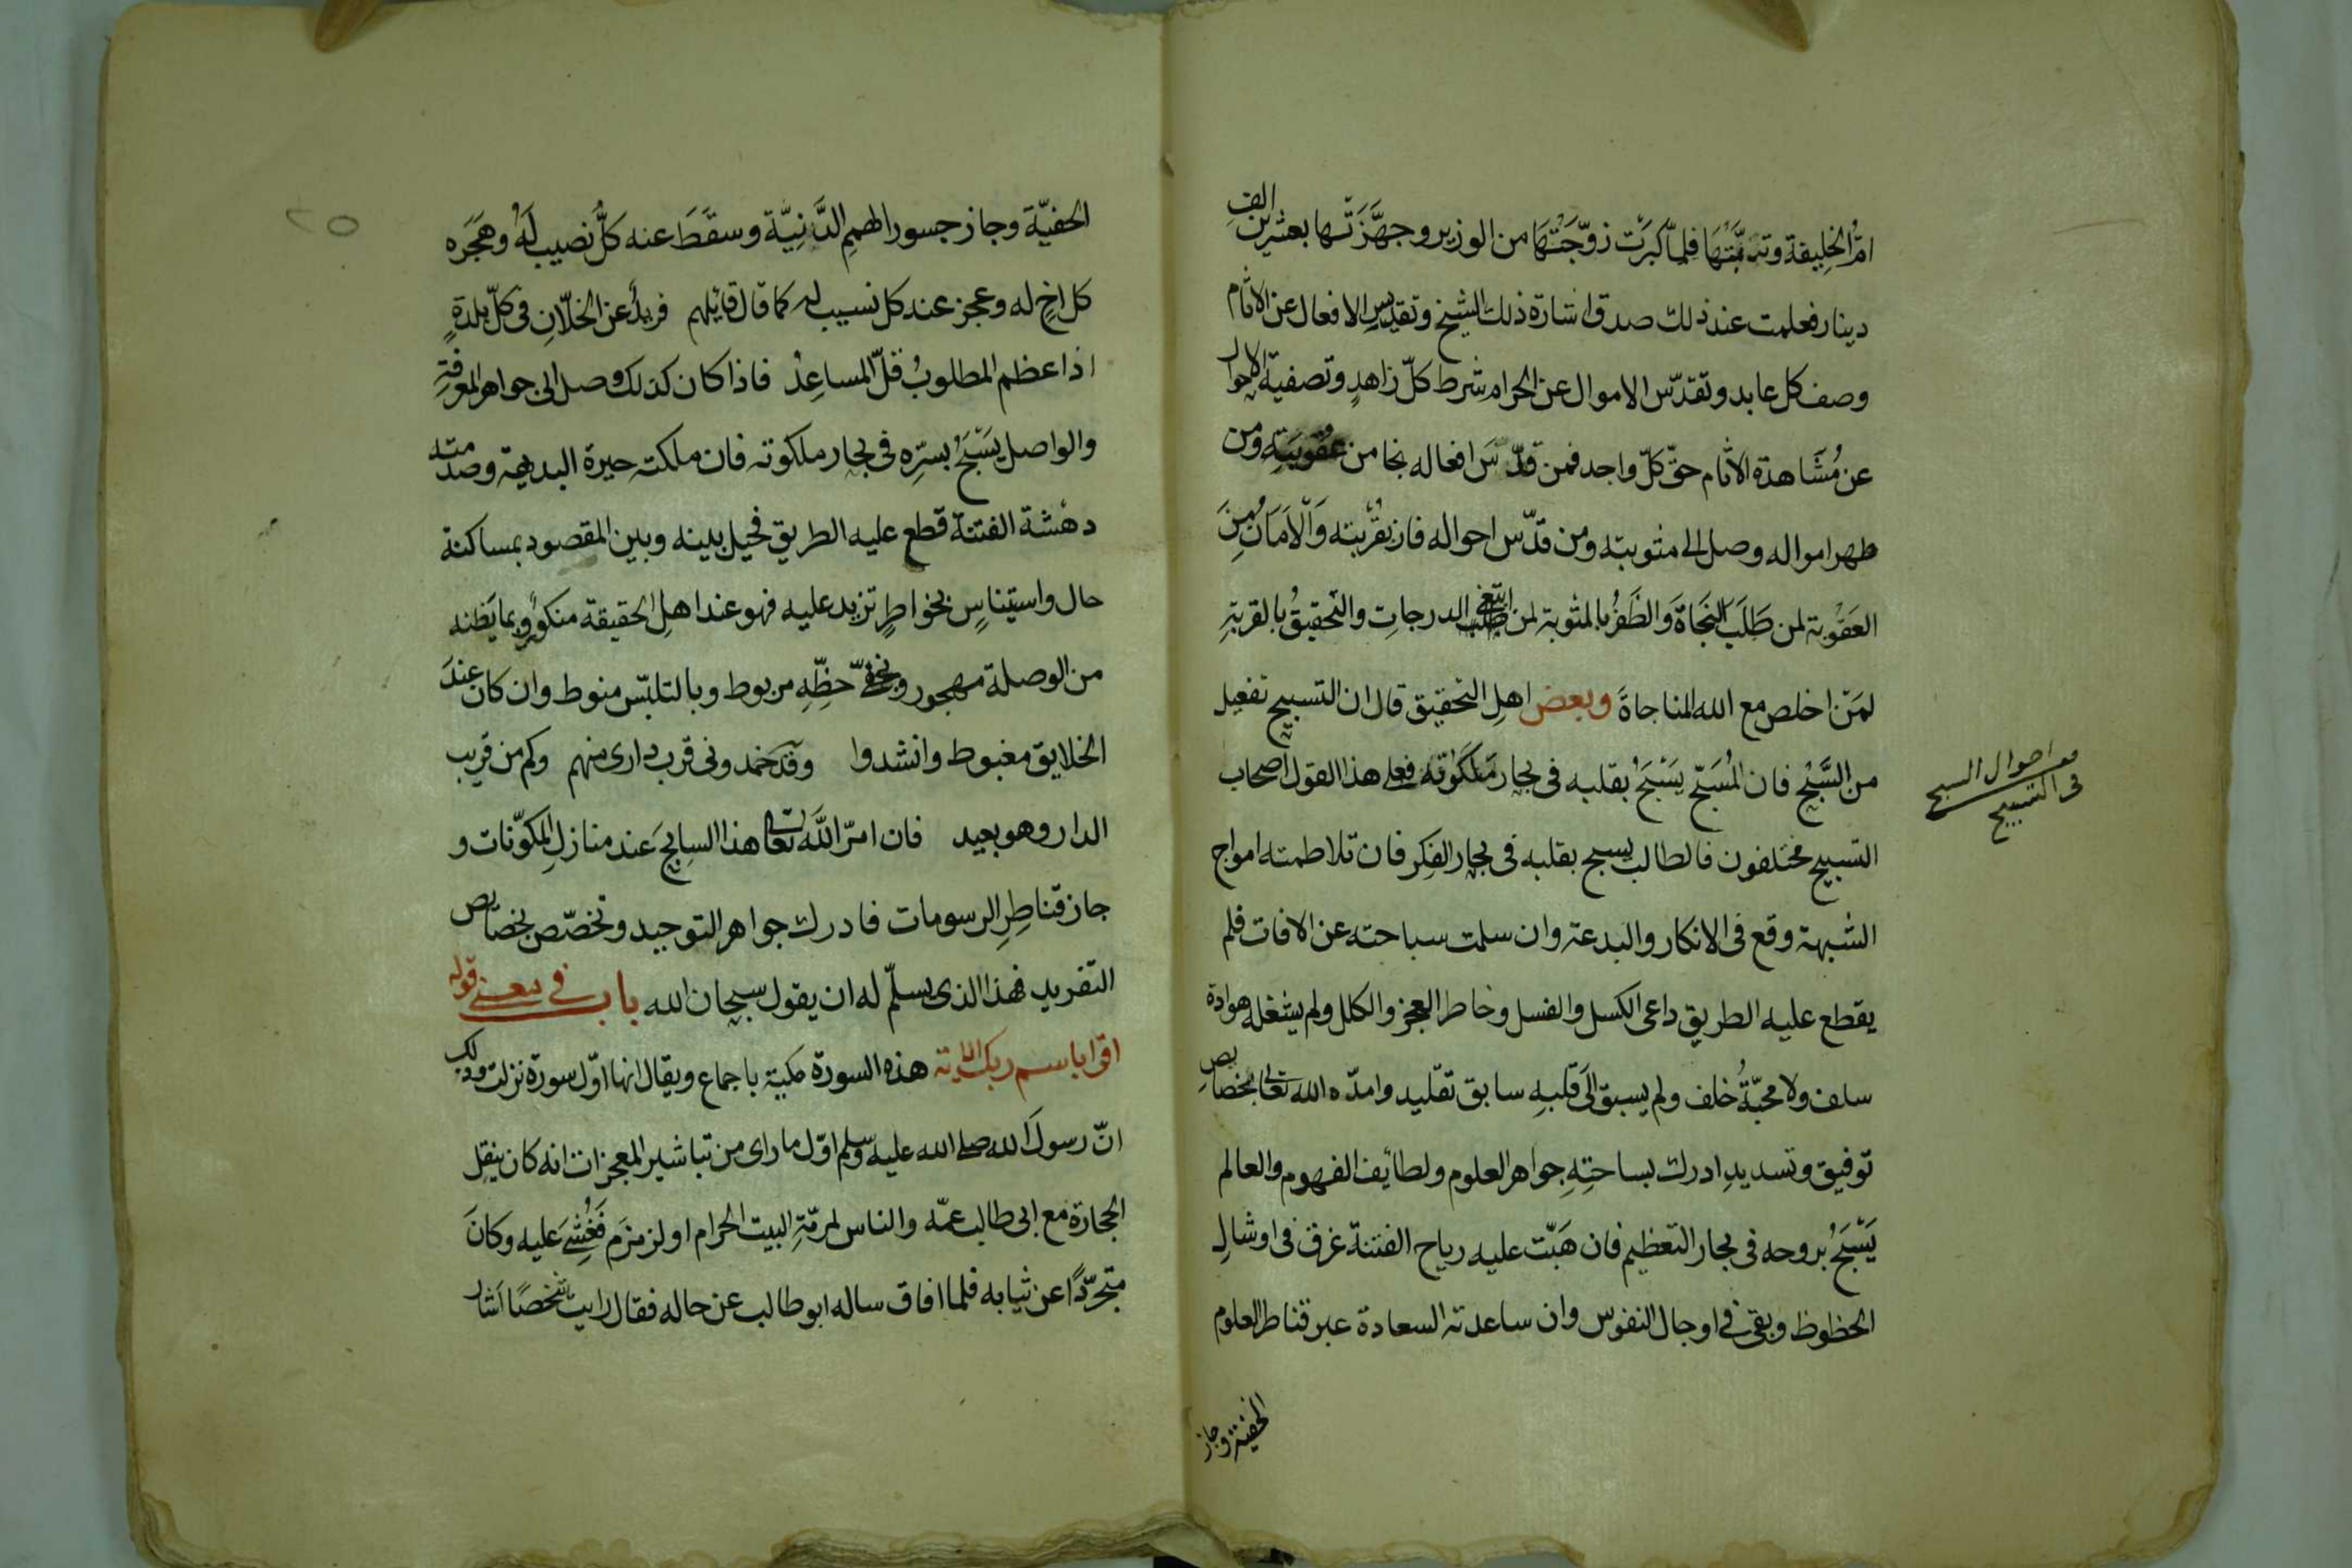 امّ الخليفة وتبنّتها فلمّا كبرت زوّجتها من الوزير وجهّزتها بعشرين الف
دينار فعلمت عند ذلك صدق اشارة ذلك الشيخ وتقديس الافعال عن الاثام
وصف كل عابد وتقدّس الاموال عن الحرام شرط كلّ زاهدٍ وتصفية الاحوال
عن مُشَاهدة الانام حقّ كلّ واجد فمن قدّس افعاله نجا من عقوبته ومن
طهر امواله وصل الى مثوبته ومن قدّس احواله فاز بقُربته وَالْاَمَانُ مِنَ
العَقُوبة لمن طَلَبَ النجَاةَ وَالظَفرُ بالمثوبة لمن ابتغى الدرجاتِ والتحقيقُ بالقربةِ
لمَن اخلص مع الله المناجاةَ وبعض اهلِ التحقيق قال ان التسبيح تفعيل
من السَّبْحِ فان المُسَبّح يَسْبَحُ بقلبه فى بحار مَلَكوته فعلى هذا القول اصحاب
التسبيح مختلفون فالطالب يسبح بقلبه فى بحار الفِكر فان تلاطمته امواج
الشبهة وقع فى الانكار والبدعة وان سلمت سباحته عن الافات فلم
يقطع عليه الطريق داعى الكسل والفسل وخاطر العجز والكلل ولم يشغله هوادة
سلف ولا محبّةُ خلف ولم يسبق الَى قلبهِ سابق تقليد وامدّه الله تعالى بخصايصِ
توفيق وتسديدِ ادرك بساحتِهِ جواهر العلوم ولطائف الفهوم والعالم
يَسْبَحُ بروحه فى بحار التعظيم فان هَبّت عليه رياح الفتنة غرق فى اوشالِ
الحظوظ وبقى فى اوحال النفوس وان ساعدته السعادة عبر قناطر العلوم
الخفيّة وجاز
احوال السبح
فى التسبيح
٢٥
الخفيّة وجاز جسور الهممِ الدَّنِيَّة وسقَطَ عنه كلُّ نصيب لَهُ وهَجَره
كل اخٍ له وعجز عند كل نسيب له كما قال قايلهم فريدٌ عن الخلّانِ فى كلّ بلدةٍ
اذا عظم المطلوبُ قلّ المساعِدُ فاذا كان كذلك وصل الى جواهر المعرفةِ
والواصل يَسْبَحُ بسرّه فى بحار ملكوته فان ملكته حيرة البديهة وصدمته
دهشة الفتنة قطع عليه الطريق فحيل بينه وبين المقصود بمساكنة
حال واستيناسٍ بخواطرٍ تزيد عليه فهو عند اهلِ الحقيقة ممكورٌ وبما يَظنه
من الوصلة مهجور وبخفىّ حظّهِ مربوط وبالتلبّس منوط وان كان عندَ
الخلايق مغبوط وانشدوا وقد حَمَدونى قرب دارى منهم وكم من قريب
الدار وهو بعيد فان امرّ اللّٰهَ تعالى هذا السابحَ عند منازلِ المكوّنات و
جاز قناطِرِ الرسومات فادرك جواهر التوحيد وتخصّص بخصايص
التفريد فهذا الذى يسلّم له ان يقول سبحان الله باب فى معنى قوله
اقرا باسم ربك الاية هذه السورة مكية باجماع ويقال انها اوّل سورة نزلت وذلك
انّ رسولَ الله صلى الله عليه وسلم اوّل ما راى من تباشير المعجزات انه كان ينقل
الحجارة مع ابى طالب عمّه والناس لمرمّةِ البيت الحرام او لزمزَم فَغُشِىَ عليه وكانَ
متجرّدًا عن ثيابه فلما افاق ساله ابو طالب عن حاله فقال رايت شخصًا اشار